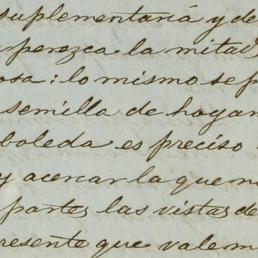 suplementaria y de
perezca la mitad
osa: lo mismo se p
semilla de hogar
boleda es preciso
y acercar la que n
partes las vistas de
presente que valem